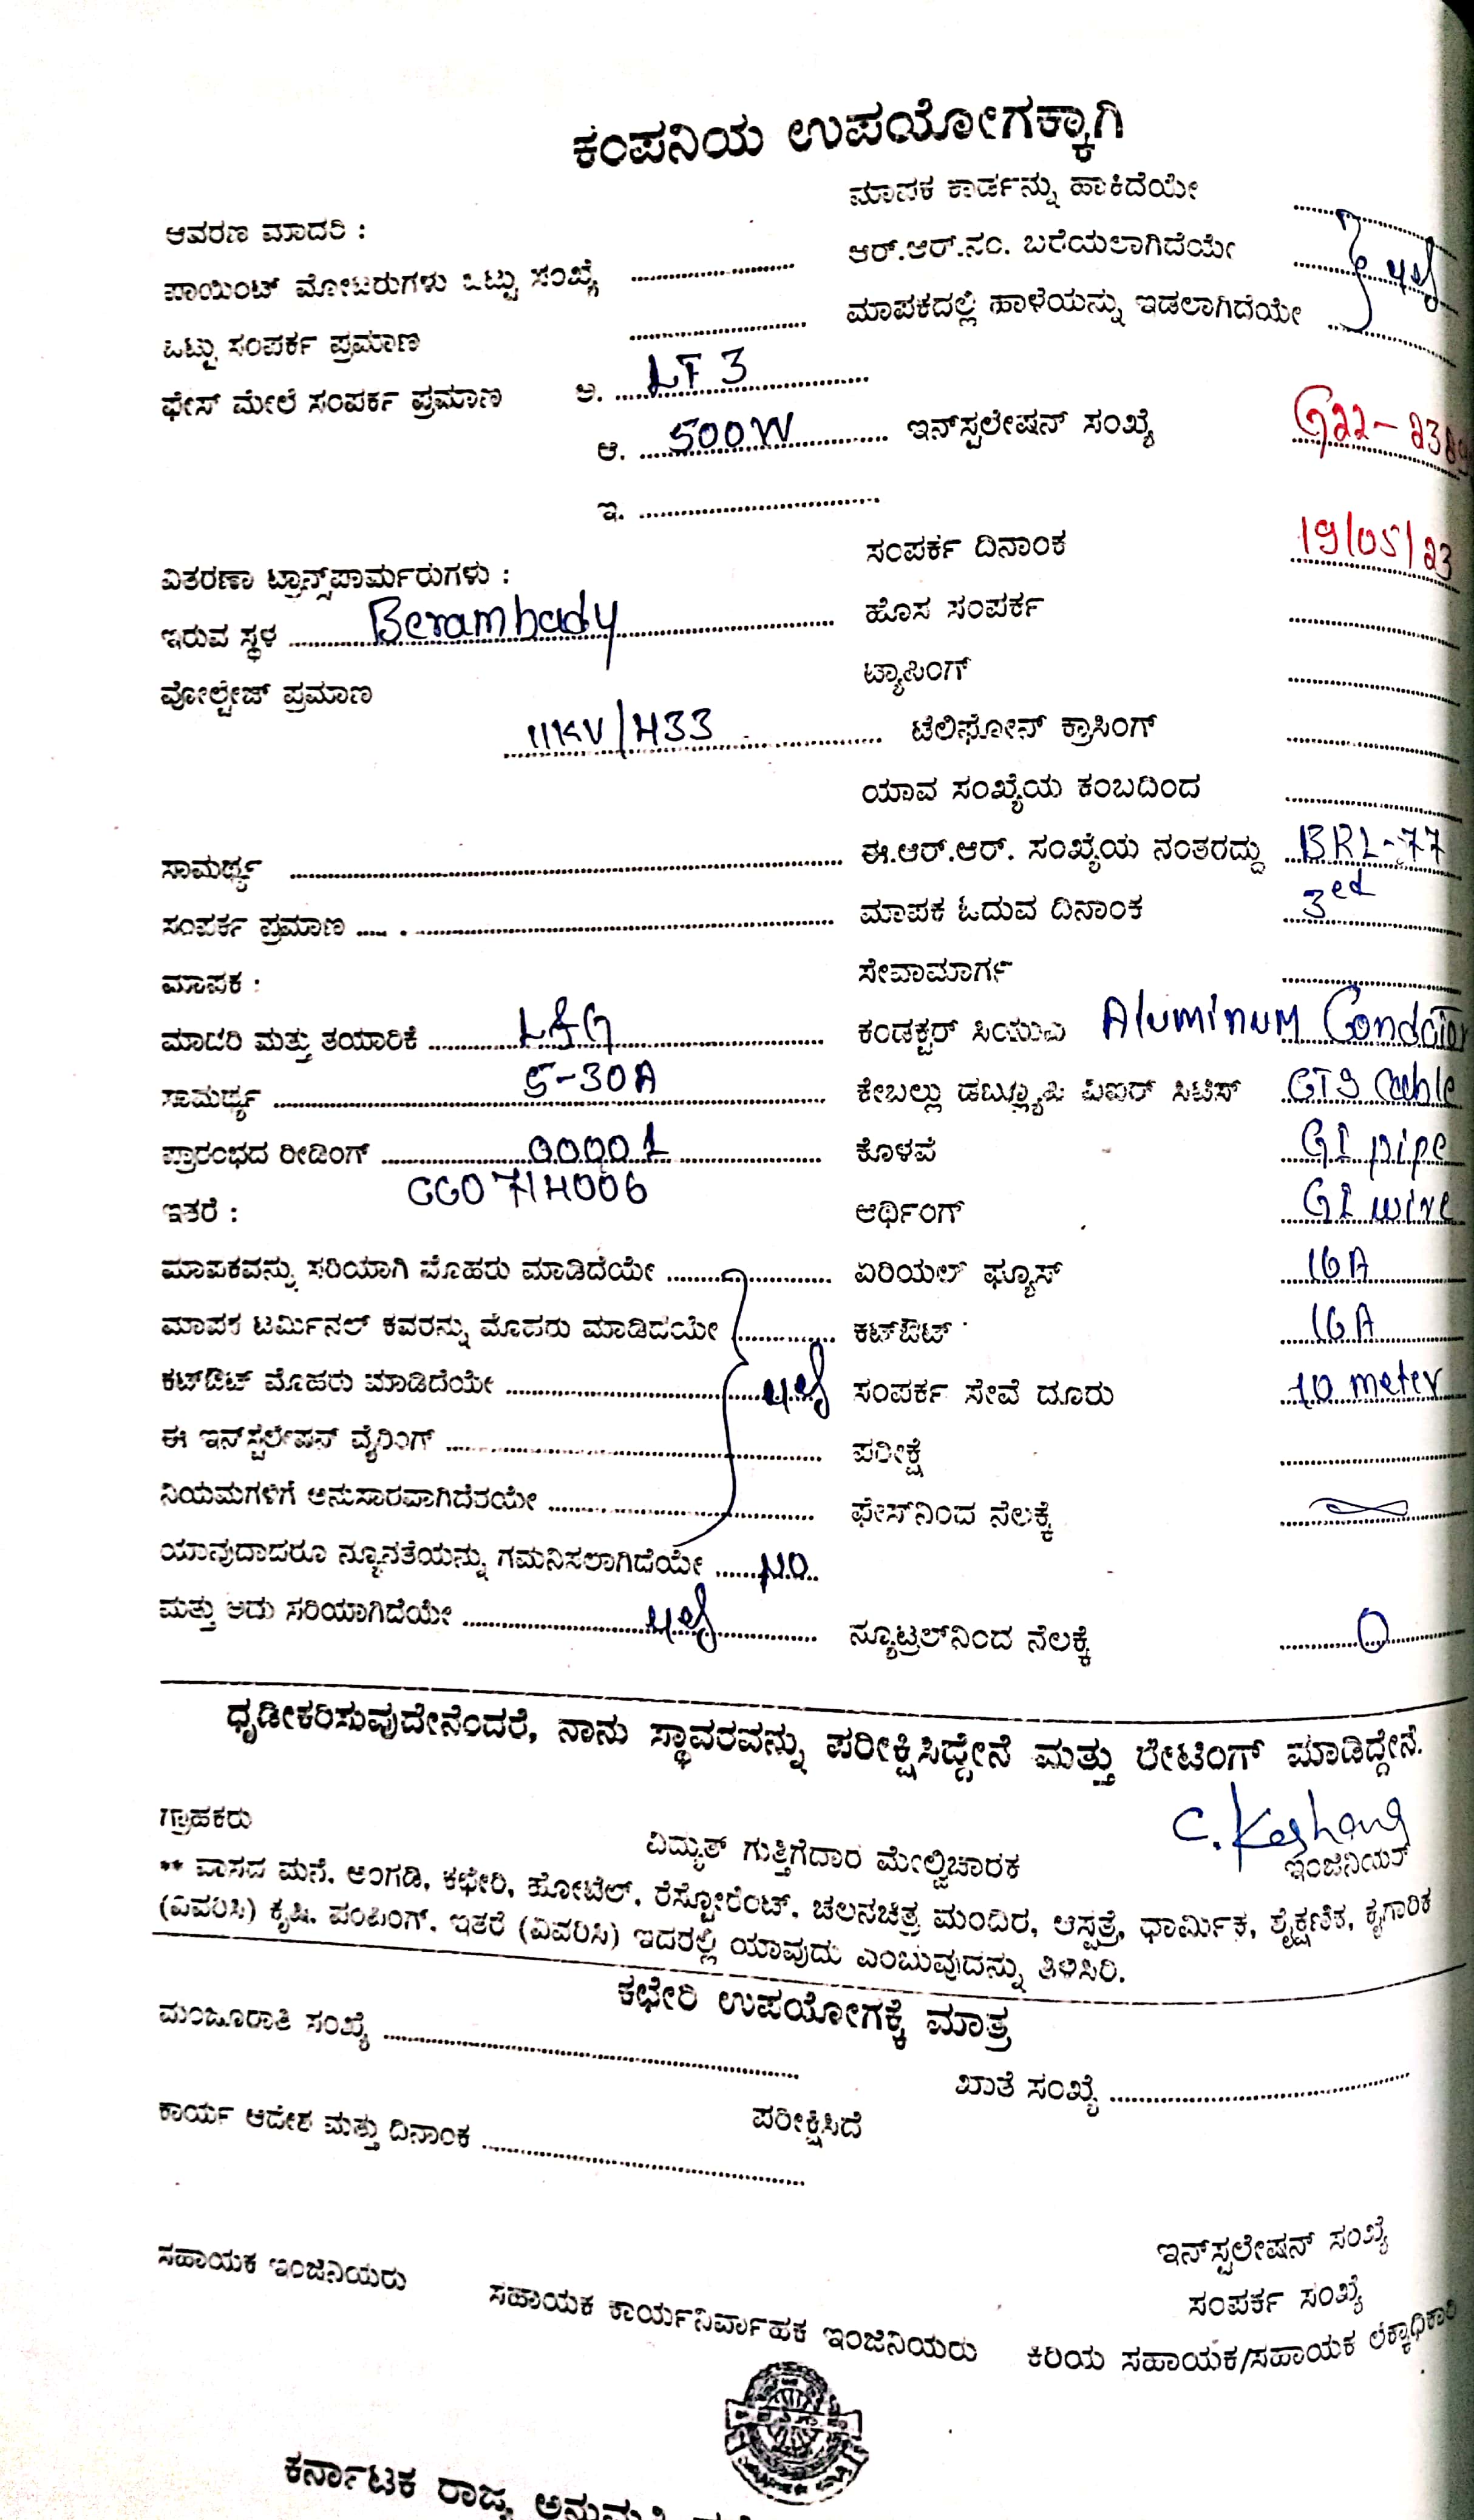 ಕಂಪನಿಯ ಉಪಯೋಗಕ್ಕಾಗಿ
ಮಾಪಕ ಕಾರ್ಡನ್ನು ಹಾಕಿದೆಯೇ
ಆವರಣ ಮಾದರಿ :
ಆರ್.ಆರ್.ನಂ. ಬರೆಯಲಾಗಿದೆಯೇ yes
ಪಾಯಿಂಟ್ ಮೋಟರುಗಳು ಒಟ್ಟು ಸಂಖ್ಯೆ
ಮಾಪಕದಲ್ಲಿ ಹಾಳೆಯನ್ನು ಇಡಲಾಗಿದೆಯೇ
ಒಟ್ಟು ಸಂಪರ್ಕ ಪ್ರಮಾಣ
ಫೇಸ್ ಮೇಲೆ ಸಂಪರ್ಕ ಪ್ರಮಾಣ ಅ. LT 3
ಆ. 500W ಇನ್‌ಸ್ಟಲೇಷನ್ ಸಂಖ್ಯೆ
ಇ.
ಸಂಪರ್ಕ ದಿನಾಂಕ 19/05/23
ವಿತರಣಾ ಟ್ರಾನ್ಸ್‌ಪಾರ್ಮರುಗಳು :
ಇರುವ ಸ್ಥಳ Berambady ಹೊಸ ಸಂಪರ್ಕ
ವೋಲ್ಟೇಜ್ ಪ್ರಮಾಣ ಟ್ಯಾಪಿಂಗ್
11KV/433 ಟೆಲಿಫೋನ್ ಕ್ರಾಸಿಂಗ್
ಯಾವ ಸಂಖ್ಯೆಯ ಕಂಬದಿಂದ
ಸಾಮರ್ಥ್ಯ ಈ.ಆರ್.ಆರ್. ಸಂಖ್ಯೆಯ ನಂತರದ್ದು BRL-77
ಸಂಪರ್ಕ ಪ್ರಮಾಣ ಮಾಪಕ ಓದುವ ದಿನಾಂಕ 3ed
ಮಾಪಕ : ಸೇವಾಮಾರ್ಗ
ಮಾದರಿ ಮತ್ತು ತಯಾರಿಕೆ L&G ಕಂಡಕ್ಟರ್ Aluminum
ಸಾಮರ್ಥ್ಯ 5-30A ಕೇಬಲ್ಲು
ಪ್ರಾರಂಭದ ರೀಡಿಂಗ್ 00001 ಕೊಳವೆ GI pipe
ಇತರೆ : ಆರ್ಥಿಂಗ್ GI wire
ಮಾಪಕವನ್ನು ಸರಿಯಾಗಿ ಮೊಹರು ಮಾಡಿದೆಯೇ ಏರಿಯಲ್ ಫ್ಯೂಸ್ 16A
ಮಾಪಕ ಟರ್ಮಿನಲ್ ಕವರನ್ನು ಮೊಹರು ಮಾಡಿದೆಯೇ ಕಟ್‌ಔಟ್ 16A
ಕಟ್‌ಔಟ್ ಮೊಹರು ಮಾಡಿದೆಯೇ yes ಸಂಪರ್ಕ ಸೇವೆ ದೂರು 10 meter
ಈ ಇನ್‌ಸ್ಟಲೇಷನ್ ವೈರಿಂಗ್ ಪರೀಕ್ಷೆ
ನಿಯಮಗಳಿಗೆ ಅನುಸಾರವಾಗಿದೆಯೇ ಫೇಸ್‌ನಿಂದ ನೆಲಕ್ಕೆ
ಯಾವುದಾದರೂ ನ್ಯೂನತೆಯನ್ನು ಗಮನಿಸಲಾಗಿದೆಯೇ NO
ಮತ್ತು ಅದು ಸರಿಯಾಗಿದೆಯೇ yes ನ್ಯೂಟ್ರಲ್‌ನಿಂದ ನೆಲಕ್ಕೆ 0
ಧೃಡೀಕರಿಸುವುದೇನೆಂದರೆ, ನಾನು ಸ್ಥಾವರವನ್ನು ಪರೀಕ್ಷಿಸಿದ್ದೇನೆ ಮತ್ತು ರೇಟಿಂಗ್ ಮಾಡಿದ್ದೇನೆ.
ಗ್ರಾಹಕರು ವಿದ್ಯುತ್ ಗುತ್ತಿಗೆದಾರ ಮೇಲ್ವಿಚಾರಕ ಇಂಜಿನಿಯರ್
** ವಾಸದ ಮನೆ, ಅಂಗಡಿ, ಕಛೇರಿ, ಹೋಟೆಲ್, ರೆಸ್ಟೋರೆಂಟ್, ಚಲನಚಿತ್ರ ಮಂದಿರ, ಆಸ್ಪತ್ರೆ, ಧಾರ್ಮಿಕ, ಶೈಕ್ಷಣಿಕ, ಕೈಗಾರಿಕ
(ವಿವರಿಸಿ) ಕೃಷಿ, ಪಂಪಿಂಗ್, ಇತರೆ (ವಿವರಿಸಿ) ಇದರಲ್ಲಿ ಯಾವುದು ಎಂಬುವುದನ್ನು ತಿಳಿಸಿರಿ.
ಕಛೇರಿ ಉಪಯೋಗಕ್ಕೆ ಮಾತ್ರ
ಮಂಜೂರಾತಿ ಸಂಖ್ಯೆ ಖಾತೆ ಸಂಖ್ಯೆ
ಕಾರ್ಯ ಆದೇಶ ಮತ್ತು ದಿನಾಂಕ ಪರೀಕ್ಷಿಸಿದೆ
ಇನ್‌ಸ್ಟಲೇಷನ್ ಸಂಖ್ಯೆ
ಸಂಪರ್ಕ ಸಂಖ್ಯೆ
ಸಹಾಯಕ ಇಂಜಿನಿಯರು ಸಹಾಯಕ ಕಾರ್ಯನಿರ್ವಾಹಕ ಇಂಜಿನಿಯರು ಕಿರಿಯ ಸಹಾಯಕ/ಸಹಾಯಕ ಲೆಕ್ಕಾಧಿಕಾರಿ
ಕರ್ನಾಟಕ ರಾಜ್ಯ